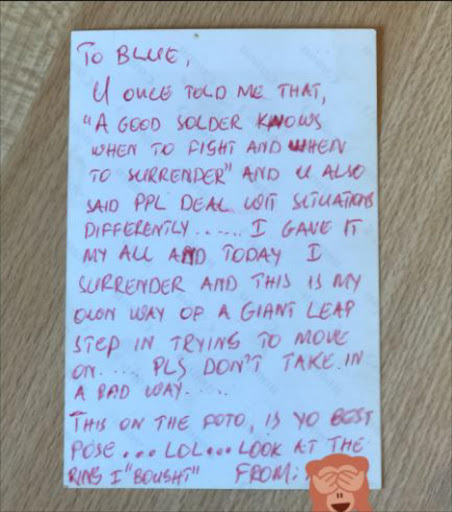 To BLUE,
U ONCE TOLD ME THAT,
"A GOOD SOLDER KNOWS
WHEN TO FIGHT AND WHEN
TO SURRENDER" AND U ALSO
SAID PPL DEAL WIT SITUATIONS
DIFFERENTLY...... I GAVE IT
MY ALL AND TODAY I
SURRENDER AND THIS IS MY
OWN WAY OF A GIANT LEAP
STEP IN TRYING TO MOVE
ON.... PLS DON'T TAKE IN
A BAD WAY.....
THIS ON THE FOTO, IS YO BEST
POSE... LOL... LOOK AT THE
RING I "BOUSHT" FROM: